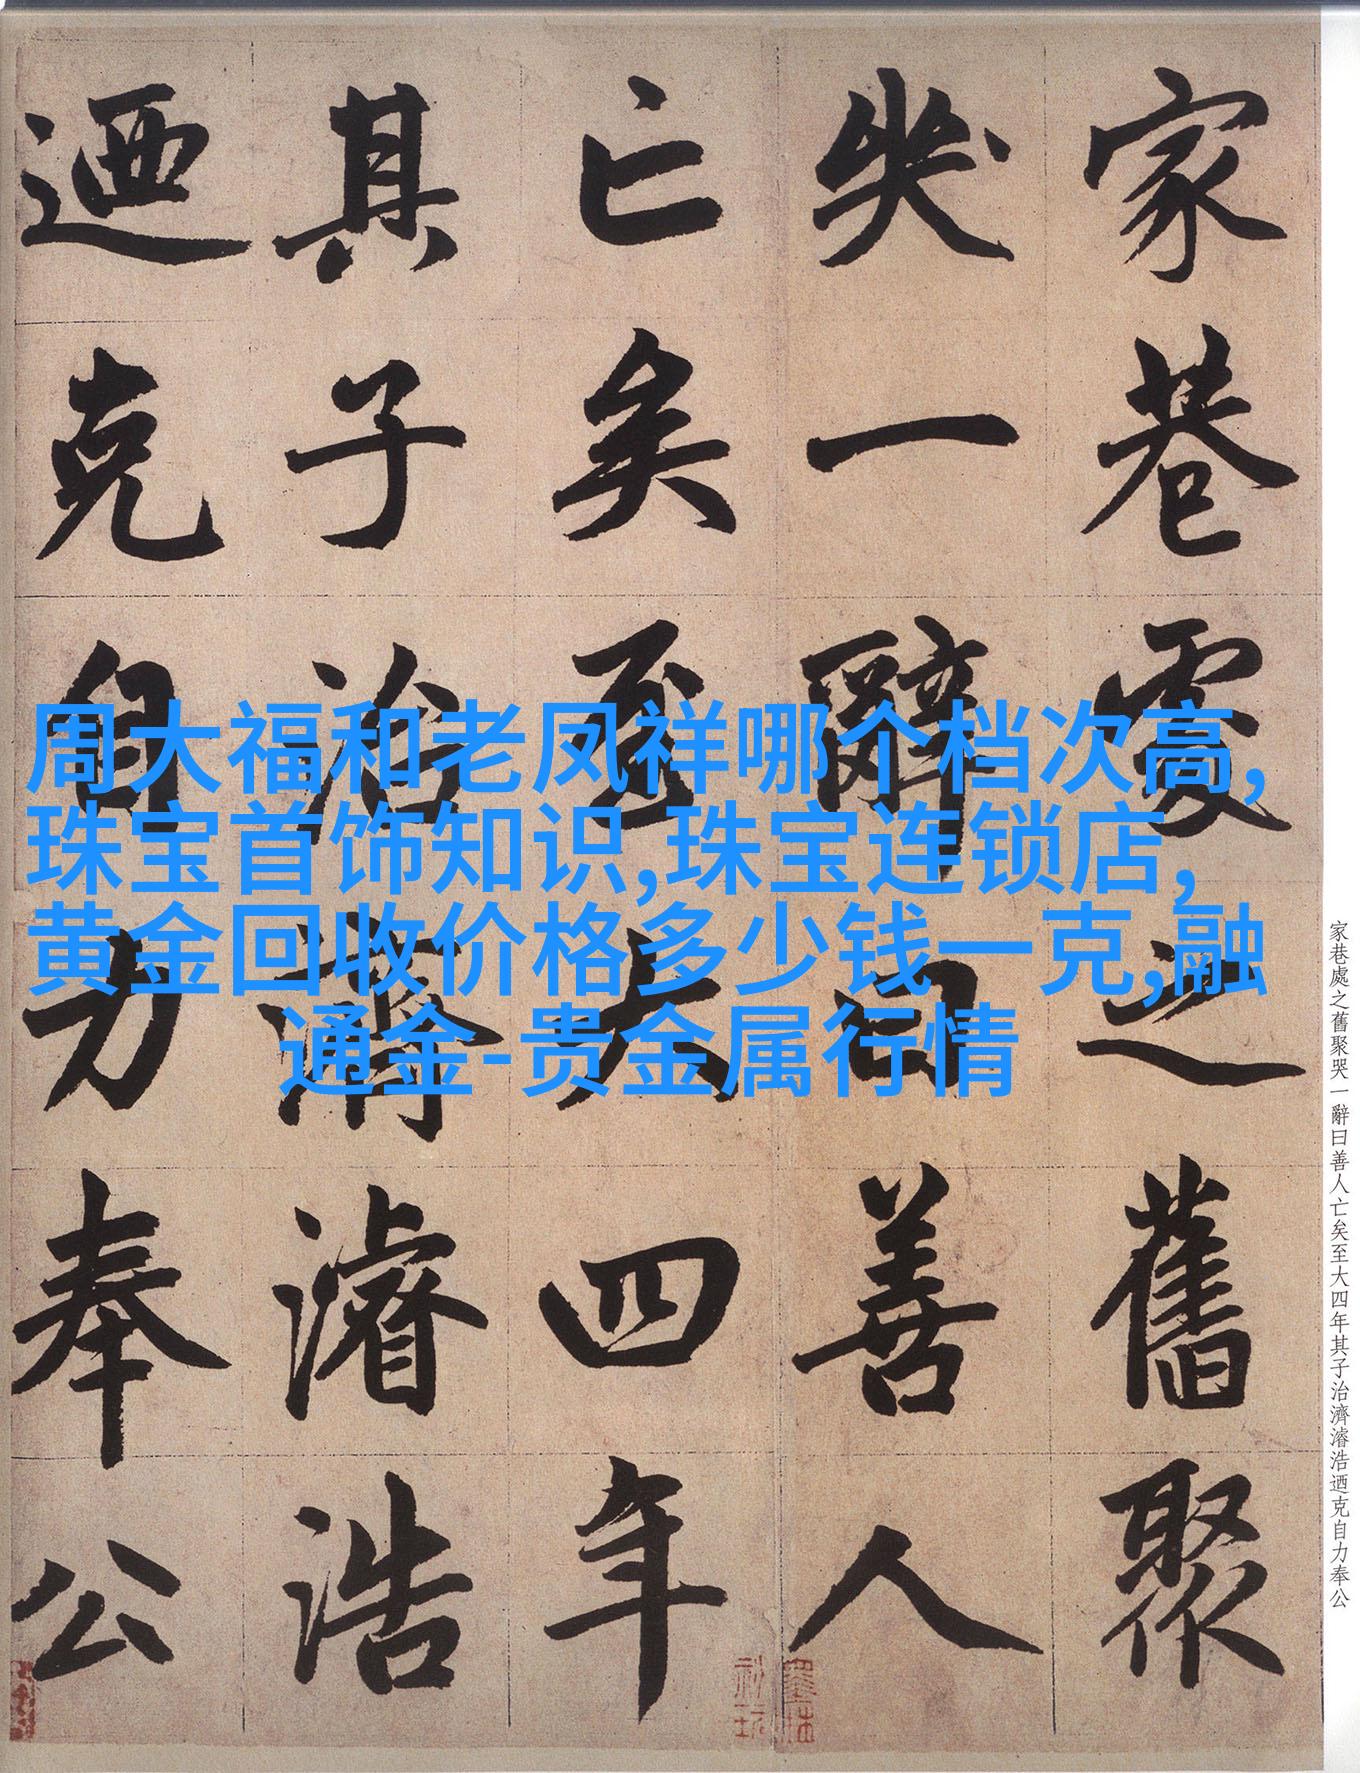 家巷處之舊聚
哭一辭曰善人
亡矣至大四年
其子治濟濬浩
迺克自力奉公
周大福和老凤祥哪个档次高,
珠宝首饰知识,珠宝连锁店,
黄金回收价格多少钱一克,融
通金-贵金属行情
家巷處之舊聚哭一辭曰善人亡矣至大四年其子治濟濬浩迺克自力奉公